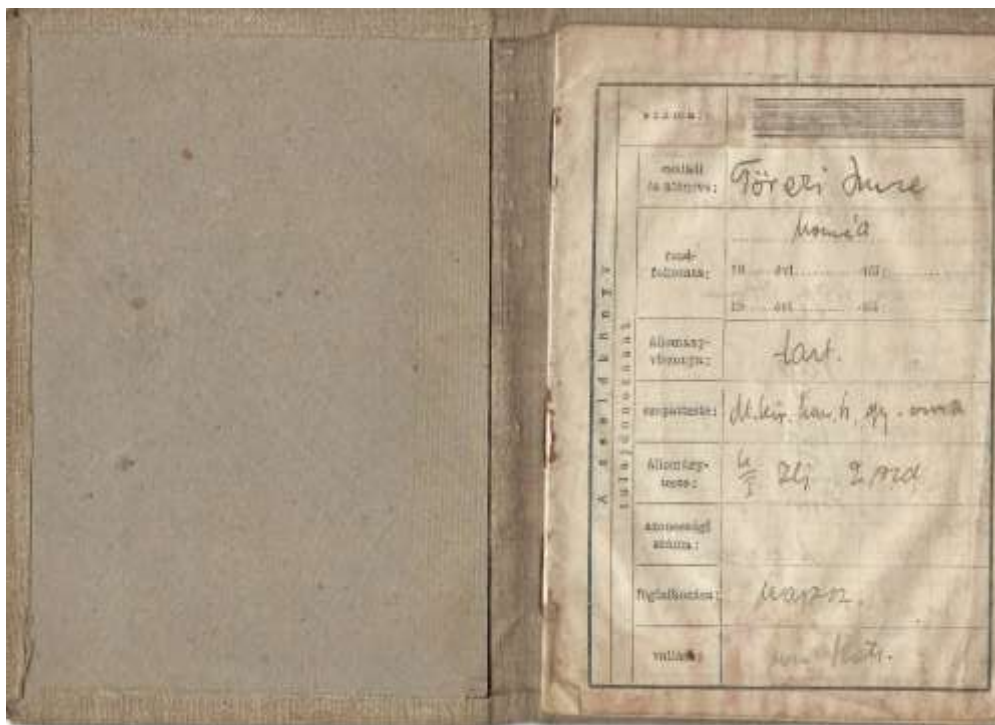 száma:
A zsoldkönyv
tulajdonosának
családi
és utóneve: Töreri Imre
rend-
fokozata:
19 ..... évi ............ -tól:
19 ..... évi ............ -tól:
állomány-
viszonya: tart.
csapatteste: M. kir. hon. h. gy.
állomány-
teste: zlj 2 szd
azonossági
száma:
foglalkozása:
vallása: kath.